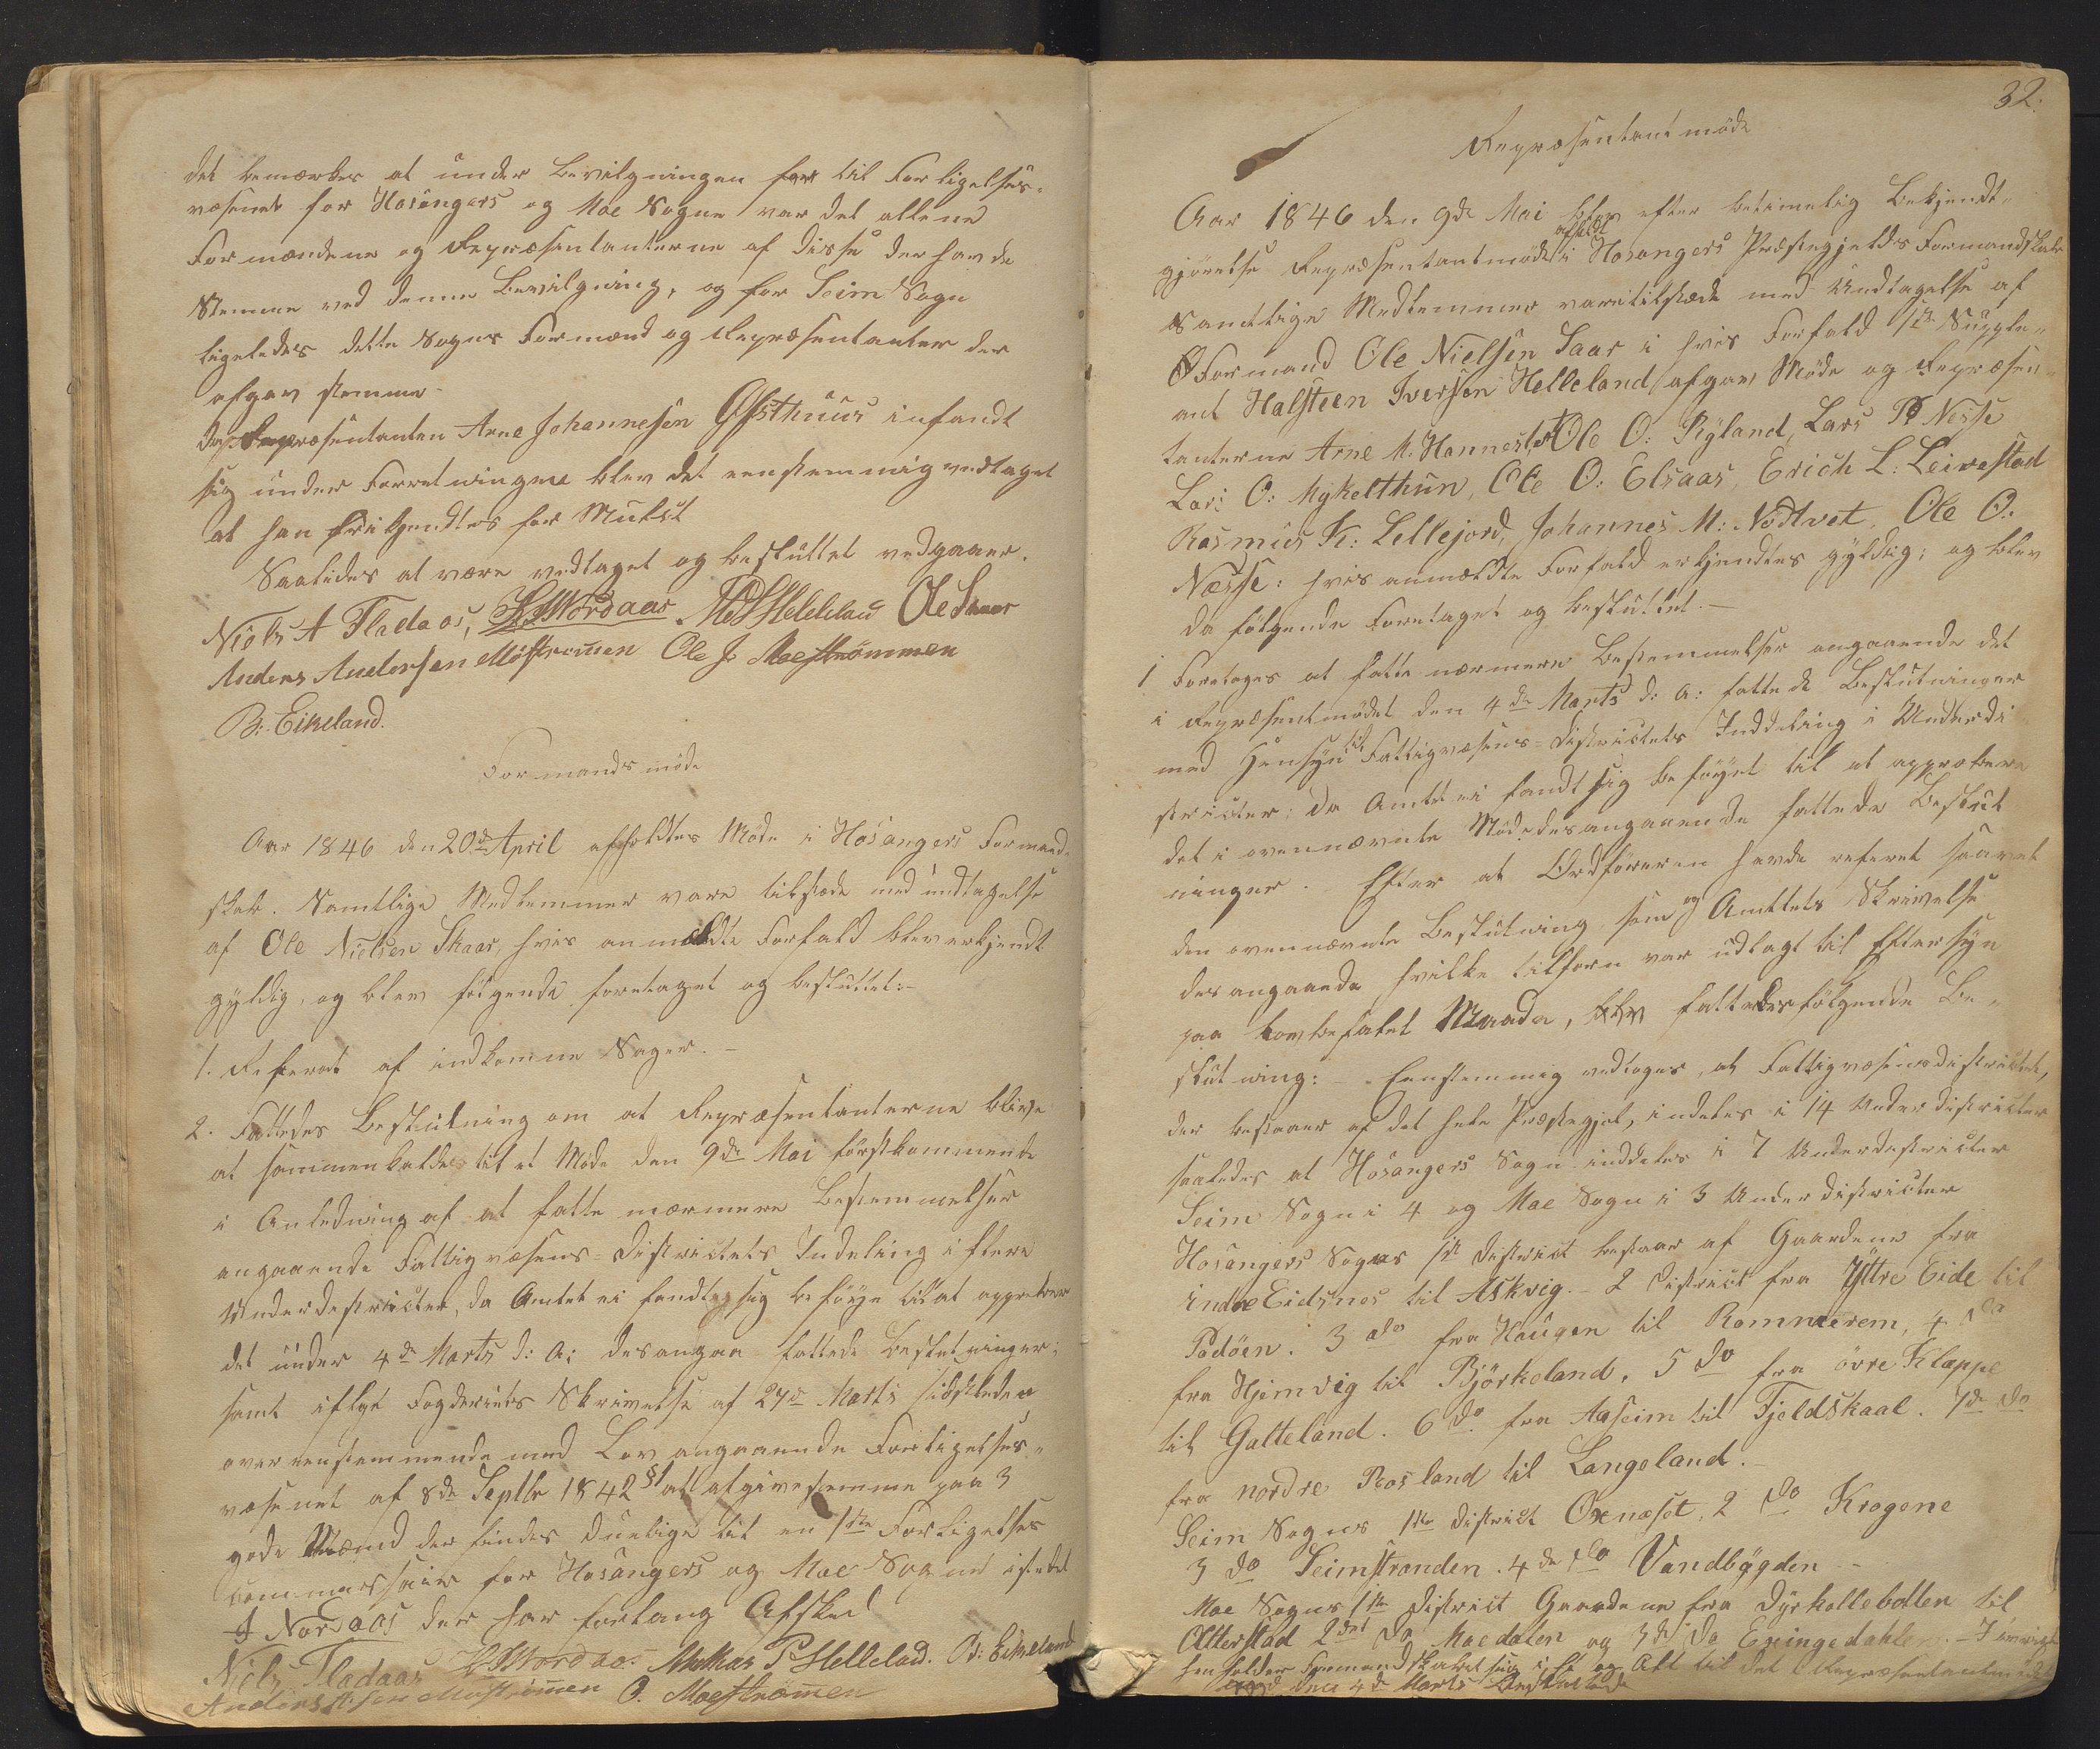 det bemærkes at under Bevilgningen for til Forligelses-
væsenet for Hosangers og Moe Sogne var det allene
Formændene og Repræsentanterne af disse der havde
Stemme ved denne Bevilgning, og for Seim Sogn
ligeledes dette Sogns Formænd og Repræsentanter der
afgav stemme.
Da Repræsentanten Arne Johannesen Ofsthuus infandt
sig under Forretningen blev det eenstemmig vedtaget
at han frikjendtes for Mulkt
Saaledes at være vedtaget og besluttet vedgaaer.
Niels A Fladaas, Nordaas Helleland Ole Skaar
Anders Andersen Mostrømen Ole J: Moestrømmen
B: Eikeland.
Formandsmöde
Aar 1846 den 20de April afholdtes Möde i Hosangers Formand-
skab. Samtlige Medlemmer vare tilstæde med undtagelse
af Ole Nielsen Skaar, hvis anmeldte Forfald blev erkjendt
gyldig, og blev fölgende foretaget og besluttet:-
1. Referat af indkomne Sager. -
2. Fattedes Beslutning om at Repræsentanterne blive
at sammenkalde til et Möde den 9de Mai förstkommende
i Anledning af at fatte nærmere Bestemmelser
angaaende Fattigvæsens-Districtets Indeling i flere
Underdistricter, da Amtet ei fandt sig beföye til at approbere
det under 4de Marts d: A: desangaa fattede Beslutninger;
samt ifölge Fogderiets Skrivelse af 27de Marts sidstleden
overeenstemmende med Lov angaaende Forligelses-
væsenet af 8de Septbr 1842 §1 at afgive stemme paa 3
gode Mænd der findes duelige til en 1ste Forligelses
commissair for Hosangers og Moe Sogne istedet
Nordaas der har forlang Afsked
Niels Fladaas Nordaas. Mikkas P Hellelad. B: Eikeland
Anders Mostrømen O. Moestrømen
32.
Repræsentantmöde
Aar 1846 den 9de Mai blev efter betimelig Bekjendt-
gjörelse Repræsentantmöde afholdt i Hosangers Præstegjelds Formandskab
Samtlige Medlemmer vare tilstæde med Undtagelse af
Formand Ole Nielsen Saar i hvis Forfald 1ste Supple-
ant Halsteen Iversen Helleland afgav Möde og Repræsen-
tanterne Arne M. Hannesdal Ole O: Ryland, Lars P Nesse
Lars O: Mykelthun, Ole O: Elsaas, Erich L: Leirestad
Rasmus K: Lellejord, Johannes M: Nodtvet, Ole O:
Næsse: hvis anmeldte Forfald erkjendtes gyldig; og blev
da fölgende Foretaget og besluttet.-
1 Foretoges at fatte nærmere Bestemmelser angaaende det
i Repræsentmödet den 4de Marts d: A: fattede Beslutninger
med Hensyn til Fattigvæsens-Districtets Inddeling i Underdi-
stricter; da Amtet ei fandt sig beföyet til at approbere
det i ovennævnte Möde desangaaende fattede Beslut
ninger. Efter at Ordföreren havde referet saavel
den ovennævnte Beslutning som og Amtets Skrivelse
desangaaende hvilke tilforn var udlagt til Eftersyn
paa lovbefalet Maade, blev fattedes fölgende Be-
slutning: - Eenstemmig vedtoges, at Fattigvæsensdistrictet,
der bestaaer af det hele Præstegjel, indeles i 14 Underdistricter
saaledes at Hosangers Sogn inddeles i 7 Underdistricter
Seim Sogn i 4 og Moe Sogn i 3 Underdistricter
Hosangers Sogns 1ste District bestaar af Gaardene fra
indre Eidsnes til Askvig. - 2 District fra Yttre Eide til
Padöen. 3 do fra Haugen til Rommerem, 4 do
fra Hjemvig til Björkeland, 5 do fra övre Klæppe
til Galteland. 6 do fra Aaseim til Fjeldskaal. 7de do
fra nordre Rosland til Langeland.
Seim Sogns 1ste District Oxnæset, 2 do Krogene
3 do Seimstranden. 4de do Vandbögden -
Moe Sogns 1ste District Gaardene fra Dyrkollebotten til
Otterstad 2det do Moedalen og 3de do Exingedahlen. - I övrigt
henholder Formandskabet sig i Et og Alt til det i Repræsentantmödet
den 4de Marts Besluttede